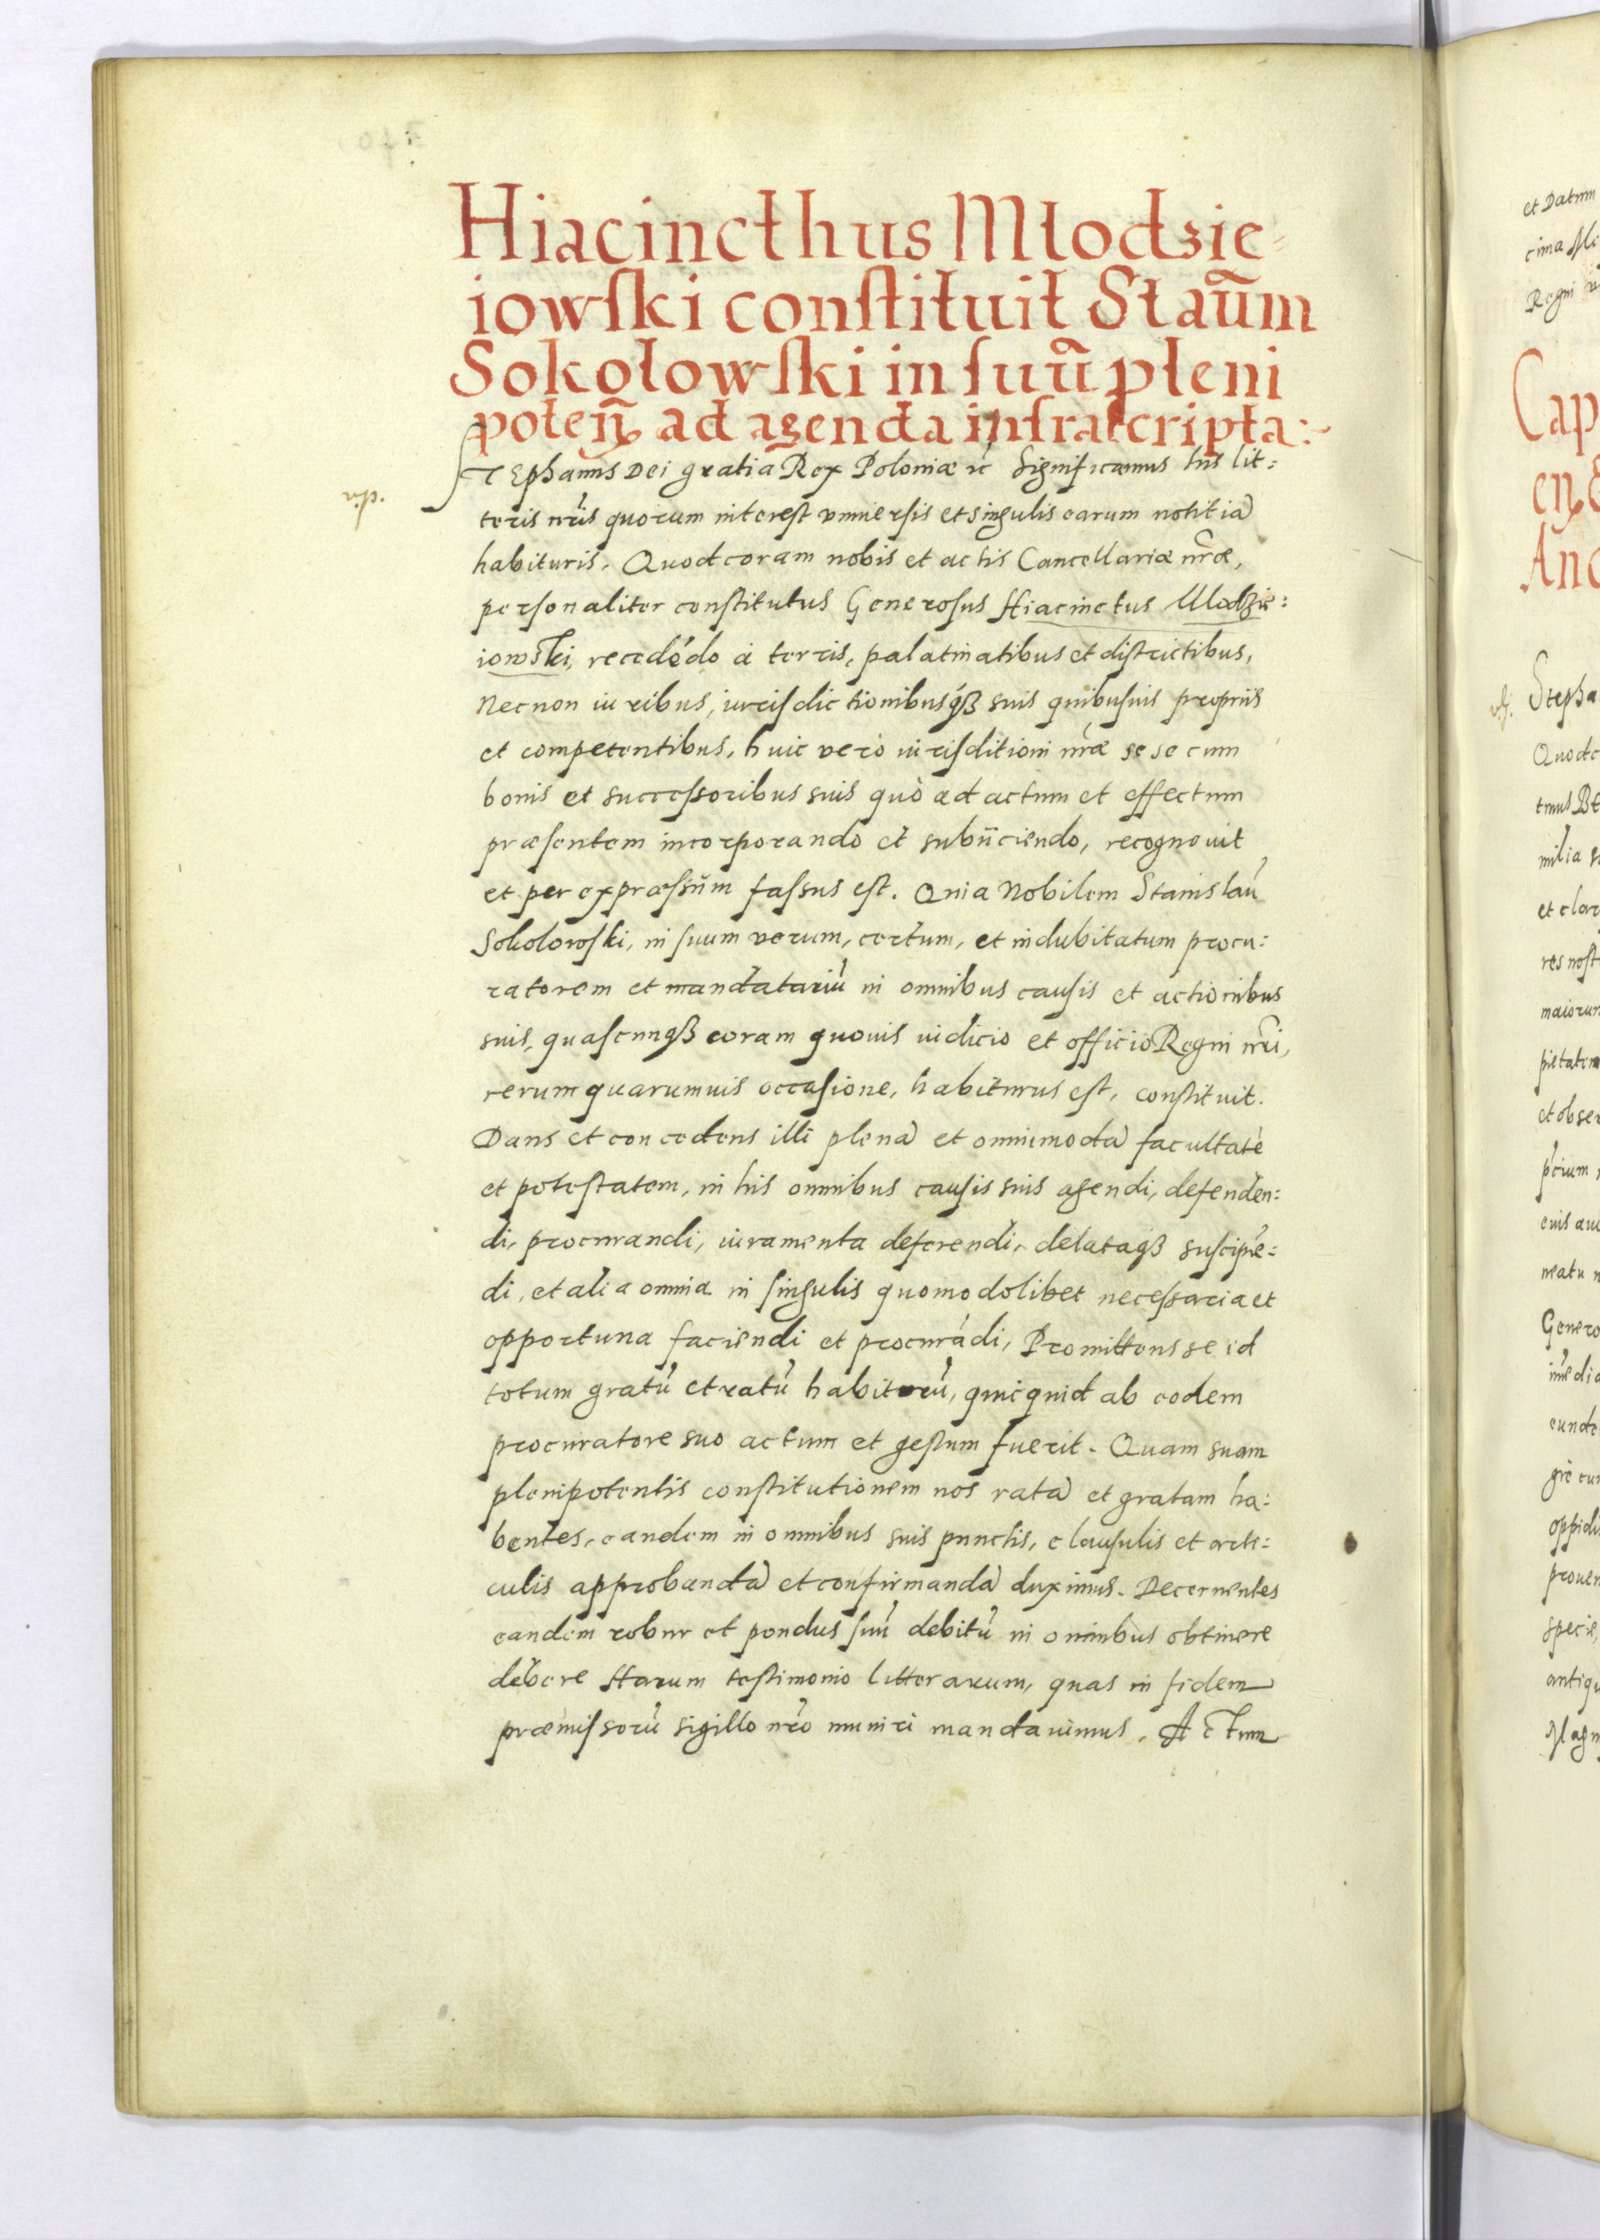 Hiacincthus Młodzie=
iowſki conſtituit Staũm
Sokołowſki in ſuũ pleni
poteñ ad agenda infraſcripta:
STEphanus Dei gratia Rex Poloniæ ić Significamus his lit:
v.p.
teris nr̃is quorum interest vniuersis et singulis earum notitiã
habituris. Quod coram nobis et actis Cancellariæ nr̃æ,
personaliter conſtitutus Generosus Hiacinctus Mlodzie:
iowski, recedẽdo à terris, palatinatibus et diſtrictibus,
Necnon iuribus, iurisdictionibusqȝ suis quibusuis proprijs
et competentibus, huic vero iurisditioni nr̃æ se se cum
bonis et succeſsoribus suis quò ad actum et effectum
præſentem incorporando et subijciendo, recognouit
et per expræſsum faſsus eſt. Quia Nobilem Stanislaũ
Sokolowſki, in ſuum verum, certum, et indubitatum procu:
ratorem et mandatariũ in omnibus cauſis et actionibus
suis, quaſcunqȝ coram quouis iudicio et officio Regni nr̃i,
rerum quarumuis occaſione, habiturus eſt, conſtituit.
Dans et concedens illi plenã et omnimodã facultatẽ
et poteſtatem, in his omnibus cauſis suis agendi, defenden:
di, procurandi, iuramenta deferendi, delataqȝ suſcipiẽ:
di, et alia omnia in ſingulis quomodolibet neceſsaria et
opportuna faciendi et procurãdi, Promittens se id
totum gratũ et ratũ habiturũ, quicquid ab eodem
procuratore suo actum et geſtum fuerit. Quam suam
plenipotentis conſtitutionem nos ratã et gratam ha:
bentes, eandem in omnibus suis punctis, clauſulis et arti:
culis approbandã et confirmandã duximus. Decernentes
eandem robur et pondus ſuũ debitũ in omnibus obtinere
debere Harum teſtimonio litterarum, quas in fidem
præmiſsorũ sigillo nr̃o muniri mandauimus. Actum
et Datum
Regni
Cap
Anc
Stepha
Quod c
milia
et clar
res noſt
maiorum
pietatem
et obser
Genero
oppidi
prouen
specie,
antiqu
Magn